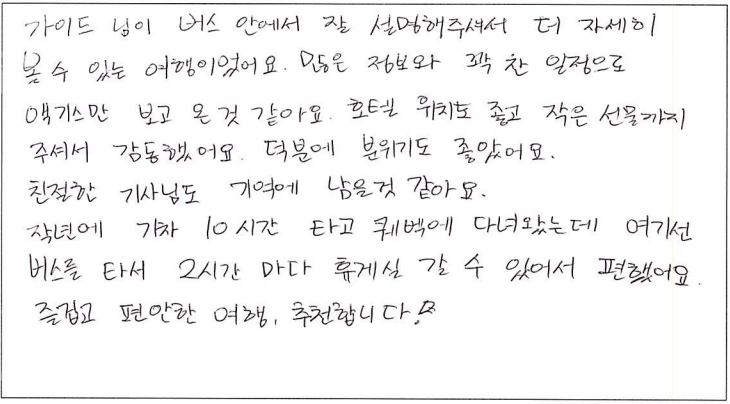 가이드 님이 버스 안에서 잘 설명해주셔서 더 자세히
볼 수 있는 여행이었어요. 많은 정보와 꽉 찬 일정으로
액기스만 보고 온 것 같아요. 호텔 위치도 좋고 작은 선물까지
주셔서 감동했어요. 덕분에 분위기도 좋았어요.
친절한 기사님도 기억에 남을것 같아요.
작년에 기차 10시간 타고 퀘벡에 다녀왔는데 여기선
버스를 타서 2시간 마다 휴게실 갈 수 있어서 편했어요.
즐겁고 편안한 여행, 추천합니다!